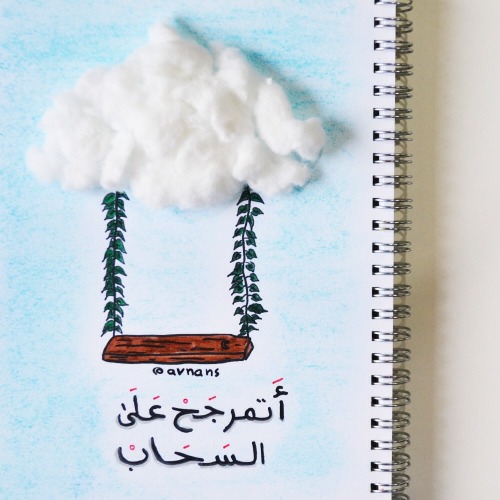 @avnans
أَتمرجَحْ عَلَىٰ
السَحَابْ